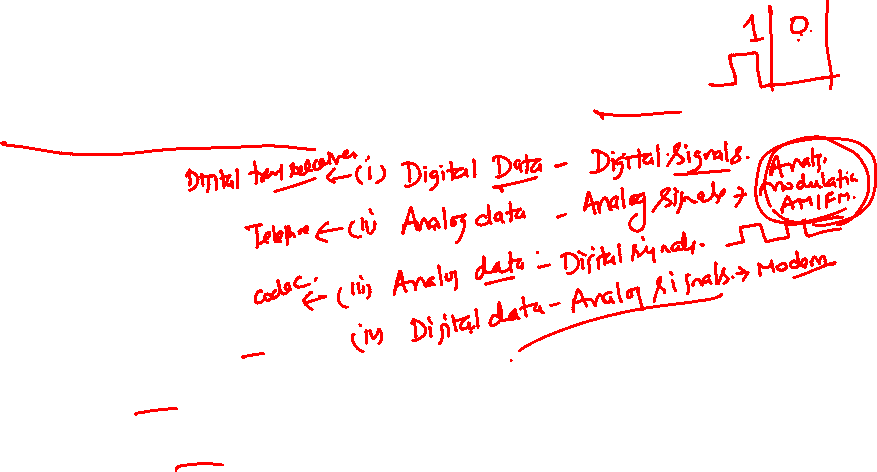 1 0
Digital transceiver ← (i) Digital Data - Digital signals.
Telephone ← (ii) Analog data - Analog signals → Analog modulation AM/FM.
codec. ← (iii) Analog data - Digital signals.
(iv) Digital data - Analog signals. → Modem